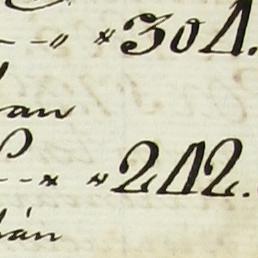 304.
an
242.
án